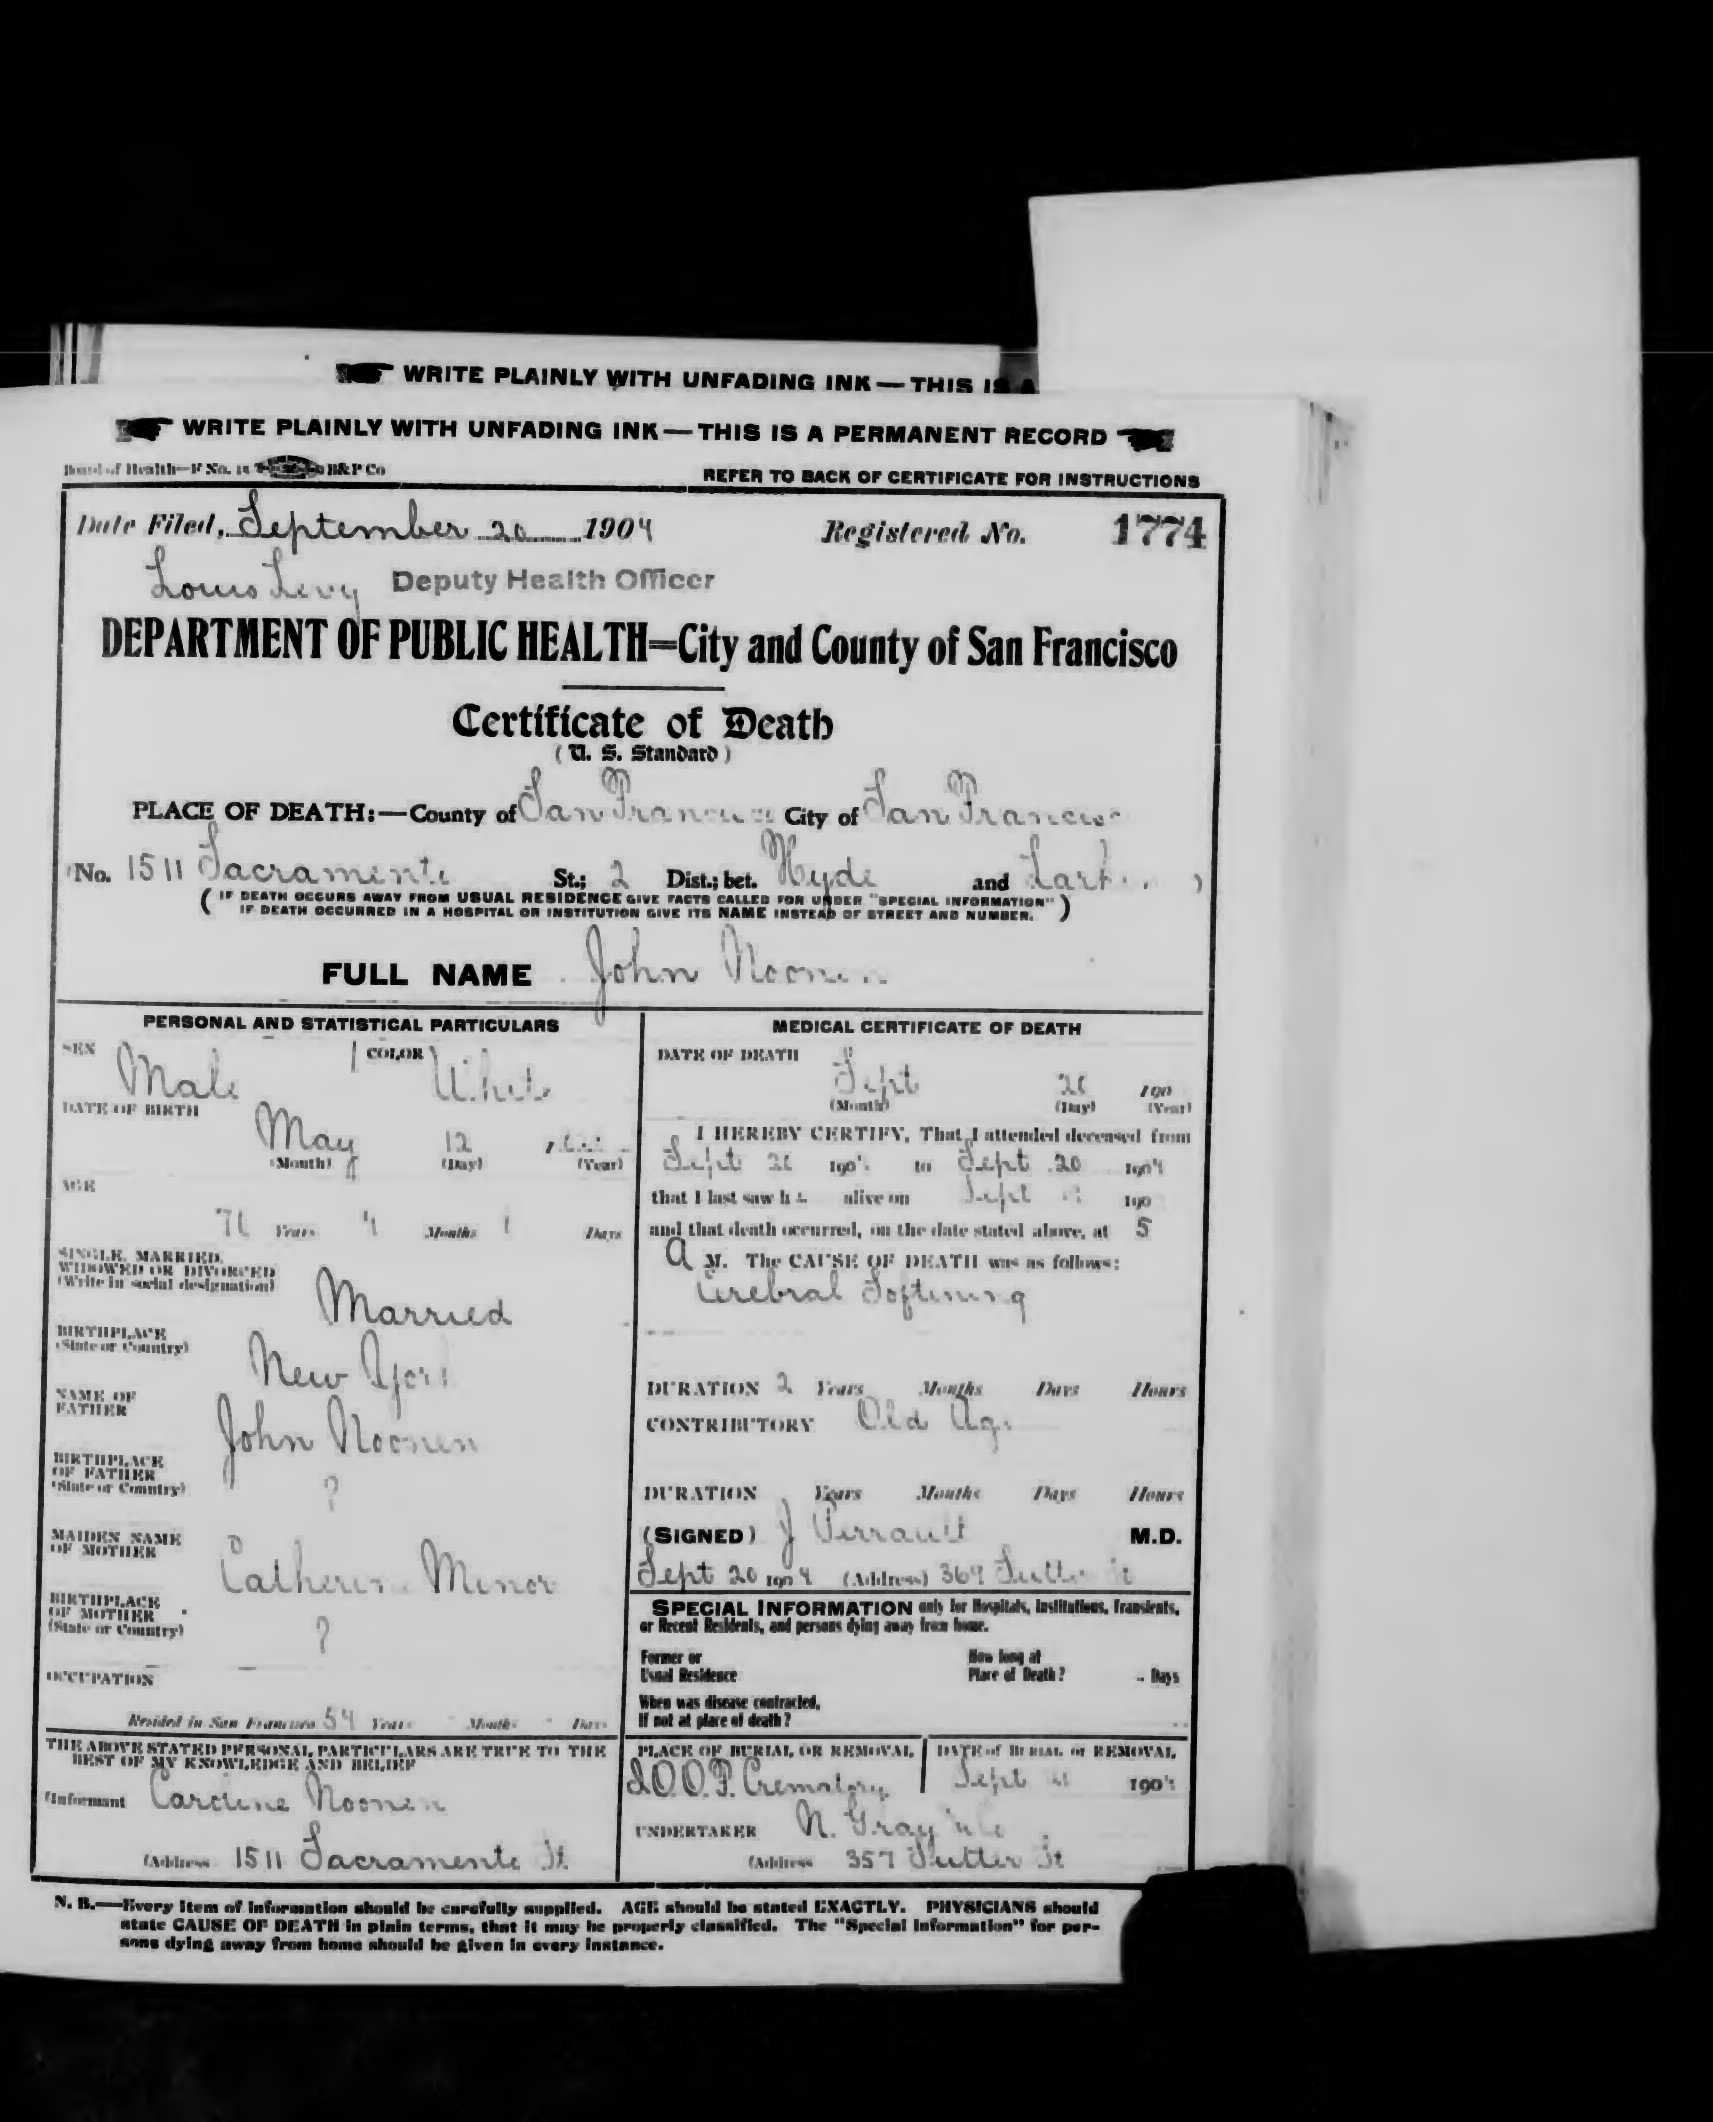 WRITE PLAINLY WITH UNFADING INK — THIS IS A
WRITE PLAINLY WITH UNFADING INK — THIS IS A PERMANENT RECORD
Board of Health—F No. B&P Co REFER TO BACK OF CERTIFICATE FOR INSTRUCTIONS
Date Filed, September 20 1904 Registered No. 1774
Louis Levy Deputy Health Officer
DEPARTMENT OF PUBLIC HEALTH=City and County of San Francisco
Certificate of Death
(U. S. Standard)
PLACE OF DEATH:—County of San Francisco City of San Francisco
(No. 1511 Sacramento St.; 2 Dist.; bet. Hyde and Larkin )
(IF DEATH OCCURS AWAY FROM USUAL RESIDENCE GIVE FACTS CALLED FOR UNDER "SPECIAL INFORMATION"
IF DEATH OCCURRED IN A HOSPITAL OR INSTITUTION GIVE ITS NAME INSTEAD OF STREET AND NUMBER.)
FULL NAME John Noonen
PERSONAL AND STATISTICAL PARTICULARS
SEX Male COLOR White
DATE OF BIRTH
May 12 1
(Month) (Day) (Year)
AGE
Years 4 Months Days
SINGLE, MARRIED,
WIDOWED OR DIVORCED
(Write in social designation)
Married
BIRTHPLACE
(State or Country)
New York
NAME OF
FATHER
John Noonen
BIRTHPLACE
OF FATHER
(State or Country)
?
MAIDEN NAME
OF MOTHER
Catherine Minor
BIRTHPLACE
OF MOTHER
(State or Country)
?
OCCUPATION
Resided in San Francisco 54 Years Months Days
THE ABOVE STATED PERSONAL PARTICULARS ARE TRUE TO THE
BEST OF MY KNOWLEDGE AND BELIEF
(Informant Caroline Noonen
(Address 1511 Sacramento St
MEDICAL CERTIFICATE OF DEATH
DATE OF DEATH
Sept 20 190
(Month) (Day) (Year)
I HEREBY CERTIFY, That I attended deceased from
Sept 190 to Sept 20 1904
that I last saw h alive on Sept 190
and that death occurred, on the date stated above, at 5
A M. The CAUSE OF DEATH was as follows:
Cerebral Softening
DURATION 2 Years Months Days Hours
CONTRIBUTORY Old Age
DURATION Years Months Days Hours
(SIGNED) J Perrault M.D.
Sept 20 1904 (Address) 369 Sutter St
SPECIAL INFORMATION only for Hospitals, Institutions, Transients,
or Recent Residents, and persons dying away from home.
Former or
Usual Residence
How long at
Place of Death? Days
When was disease contracted,
If not at place of death?
PLACE OF BURIAL OR REMOVAL
I.O.O.F. Crematory
DATE of BURIAL or REMOVAL
Sept 1904
UNDERTAKER N. Gray & Co
(Address 357 Sutter St
N. B.—Every item of information should be carefully supplied. AGE should be stated EXACTLY. PHYSICIANS should
state CAUSE OF DEATH in plain terms, that it may be properly classified. The "Special Information" for per-
sons dying away from home should be given in every instance.